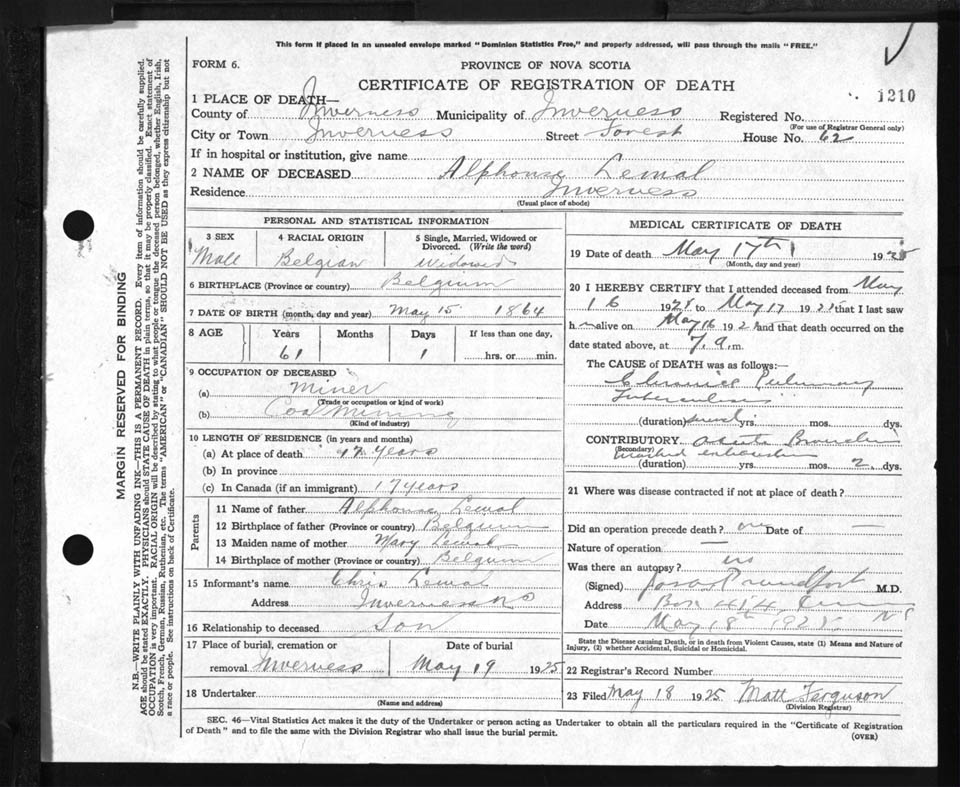 This form if placed in an unsealed envelope marked "Dominion Statistics Free," and properly addressed, will pass through the mails "FREE."
FORM 6.
PROVINCE OF NOVA SCOTIA
CERTIFICATE OF REGISTRATION OF DEATH
1210
1 PLACE OF DEATH—
County of Inverness Municipality of Inverness Registered No.
(For use of Registrar General only)
City or Town Inverness Street Forest House No. 62
If in hospital or institution, give name
2 NAME OF DECEASED Alphonse Lemal
Residence Inverness
(Usual place of abode)
PERSONAL AND STATISTICAL INFORMATION
3 SEX 4 RACIAL ORIGIN 5 Single, Married, Widowed or Divorced. (Write the word)
Male Belgian Widowed
6 BIRTHPLACE (Province or country) Belgium
7 DATE OF BIRTH (month, day and year) May 15 1864
8 AGE Years Months Days If less than one day,
61 1 hrs. or min.
9 OCCUPATION OF DECEASED
(a) Miner
(Trade or occupation or kind of work)
(b) Coal Mining
(Kind of industry)
10 LENGTH OF RESIDENCE (in years and months)
(a) At place of death years
(b) In province
(c) In Canada (if an immigrant) 17 years
Parents
11 Name of father Alphonse Lemal
12 Birthplace of father (Province or country) Belgium
13 Maiden name of mother Mary Lemal
14 Birthplace of mother (Province or country) Belgium
15 Informant's name Chris Lemal
Address Inverness NS
16 Relationship to deceased Son
17 Place of burial, cremation or Date of burial
removal Inverness May 19 1925
18 Undertaker
(Name and address)
MEDICAL CERTIFICATE OF DEATH
19 Date of death May 17th 1925
(Month, day and year)
20 I HEREBY CERTIFY that I attended deceased from May
16 192 to May 17 1925 that I last saw
h alive on May 16 192 and that death occurred on
date stated above, at 7 a.m.
The CAUSE of DEATH was as follows:—
Chronic Pulmonary
Tuberculosis
(duration) yrs. mos. dys.
CONTRIBUTORY Acute
(Secondary) marked exhaustion
(duration) yrs. mos. 2 dys.
21 Where was disease contracted if not at place of death?
Did an operation precede death? no Date of
Nature of operation —
Was there an autopsy? no
(Signed) M.D.
Address Box 414
Date May 18th 1925 NS
State the Disease causing Death, or in death from Violent Causes, state (1) Means and Nature of Injury, (2) whether Accidental, Suicidal or Homicidal.
22 Registrar's Record Number
23 Filed May 18 1925 Matt Ferguson
(Division Registrar)
SEC. 46—Vital Statistics Act makes it the duty of the Undertaker or person acting as Undertaker to obtain all the particulars required in the "Certificate of Registration
of Death" and to file the same with the Division Registrar who shall issue the burial permit.
(OVER)
MARGIN RESERVED FOR BINDING
N.B.—WRITE PLAINLY WITH UNFADING INK—THIS IS A PERMANENT RECORD. Every item of information should be carefully supplied.
AGE should be stated EXACTLY. PHYSICIANS should STATE CAUSE OF DEATH in plain terms, so that it may be properly classified. Exact statement of
OCCUPATION is very important. RACIAL ORIGIN will be described by stating to what people or tongue the deceased person belonged, whether English, Irish,
Scotch, French, German, Russian, Ruthenian, etc. The terms "AMERICAN" or "CANADIAN" SHOULD NOT BE USED as they express citizenship but not
a race or people. See instructions on back of Certificate.